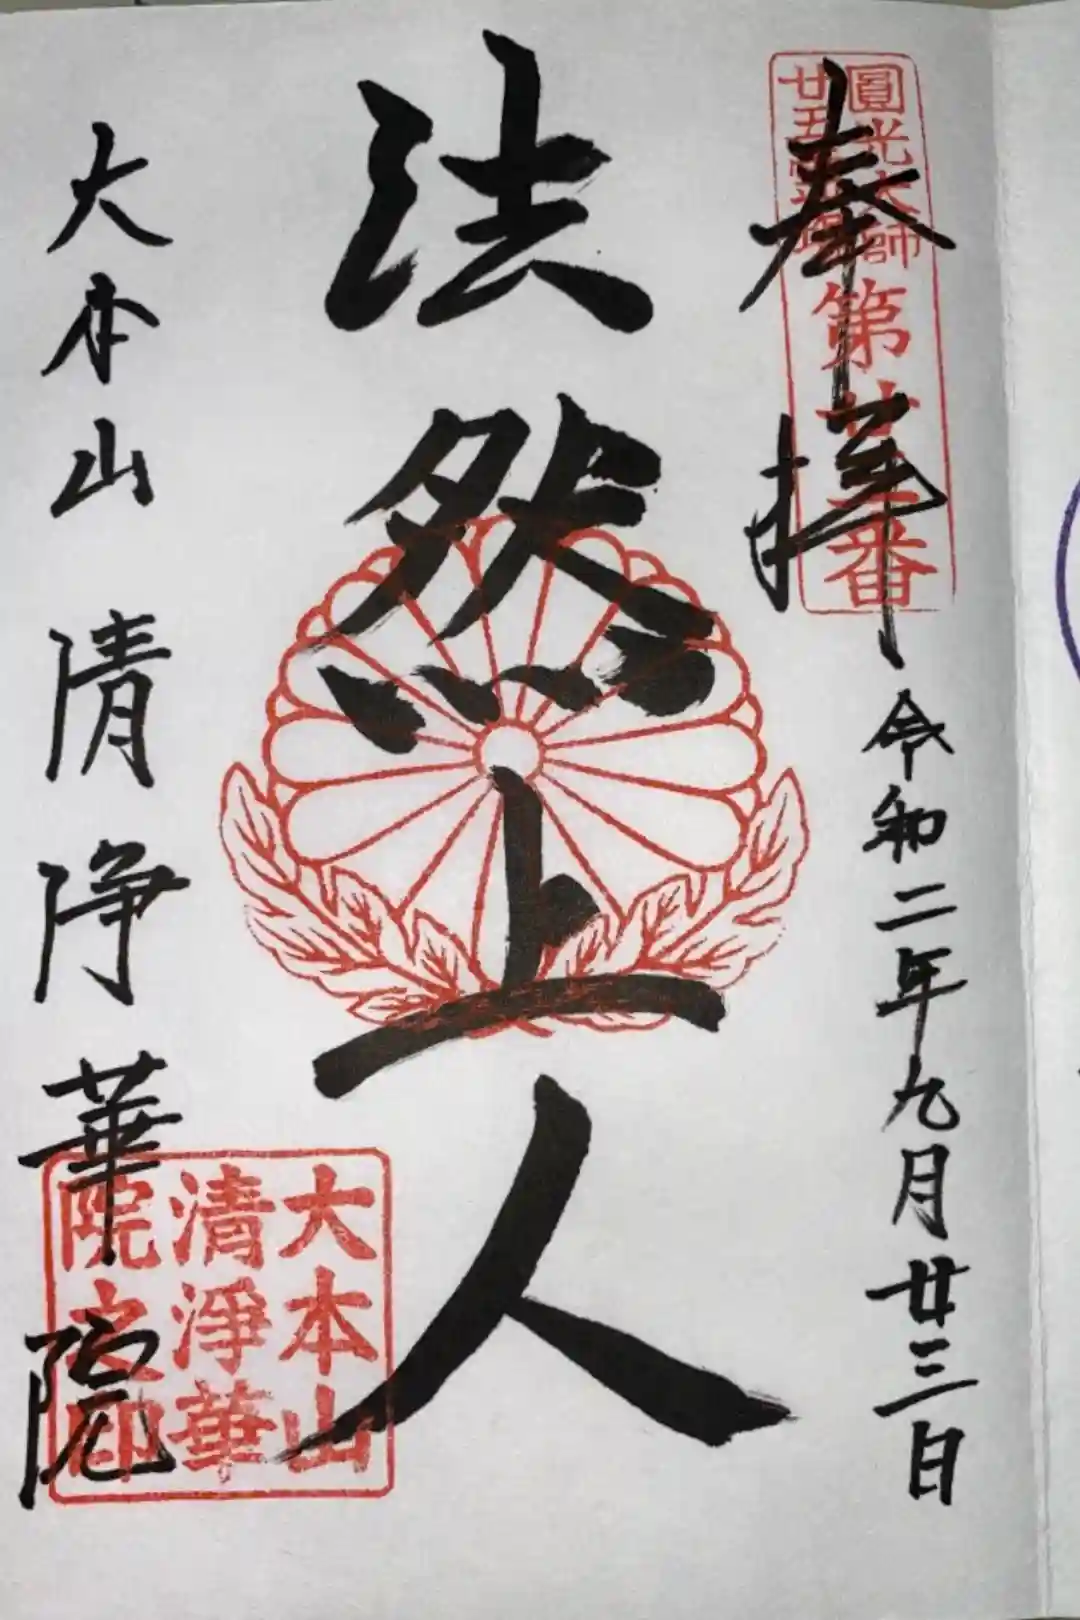 奉拝
令和二年九月廿三日
圓光大師
廿五霊場
第廿三番
法然上人
大本山 清浄華院
大本山
清淨華
院之印